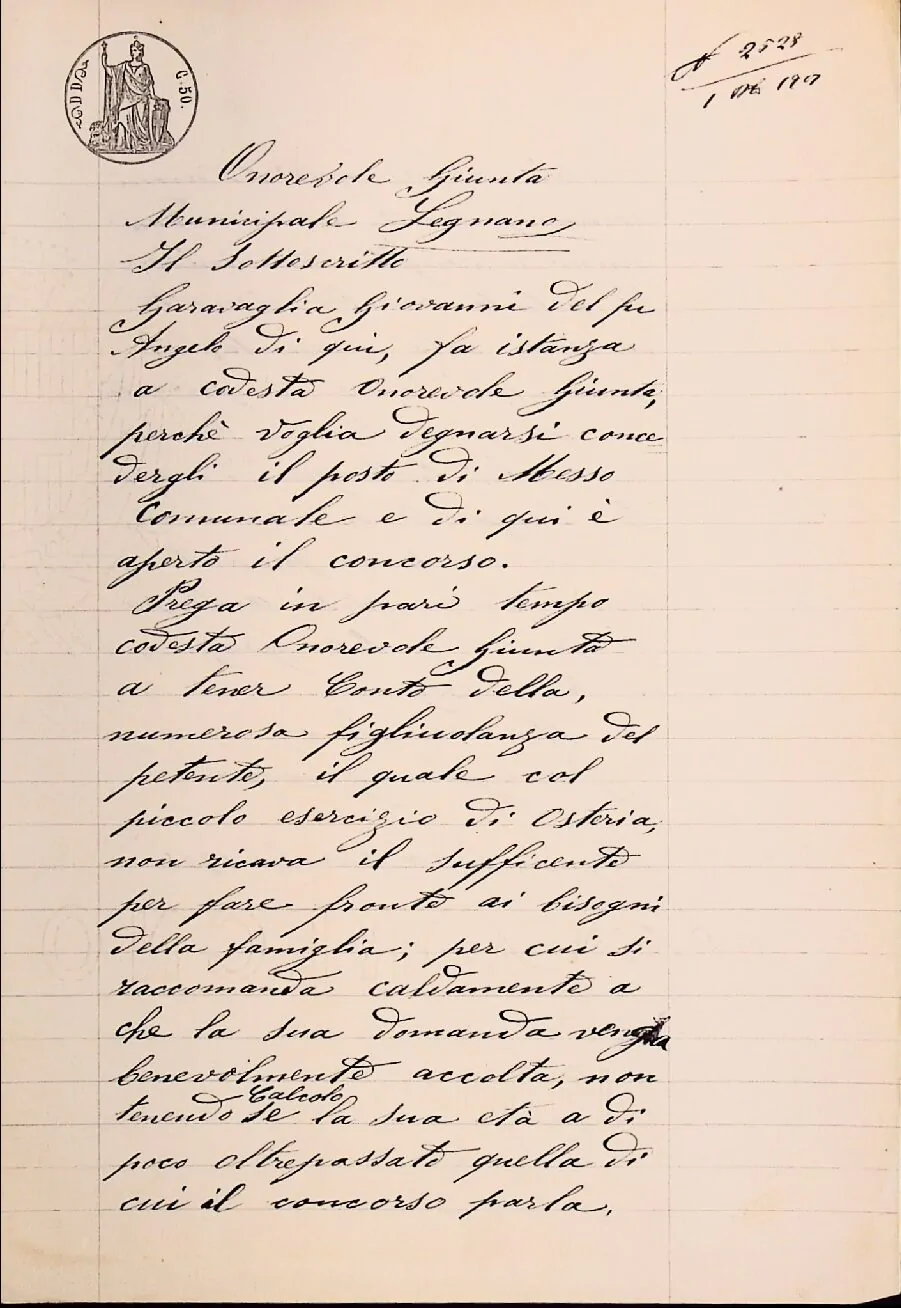 C. 50.
N 2528
1 1907
Onorevole Giunta
Municipale Legnano
Il Sottoscritto
Garavaglia Giovanni del fu
Angelo di qui, fa istanza
a codesta Onorevole Giunta,
perchè voglia degnarsi conce
dergli il posto di Messo
Comunale e di qui è
aperto il concorso.
Prega in pari tempo
codesta Onorevole Giunta
a tener Conto della,
numerosa figliuolanza del
petente, il quale col
piccolo esercizio di Osteria,
non ricava il sufficente
per fare fronte ai bisogni
della famiglia; per cui si
raccomanda caldamente a
che la sua domanda venga
benevolmente accolta, non
Calcolo
tenendo se la sua età a di
poco oltrepassato quella di
cui il concorso parla.